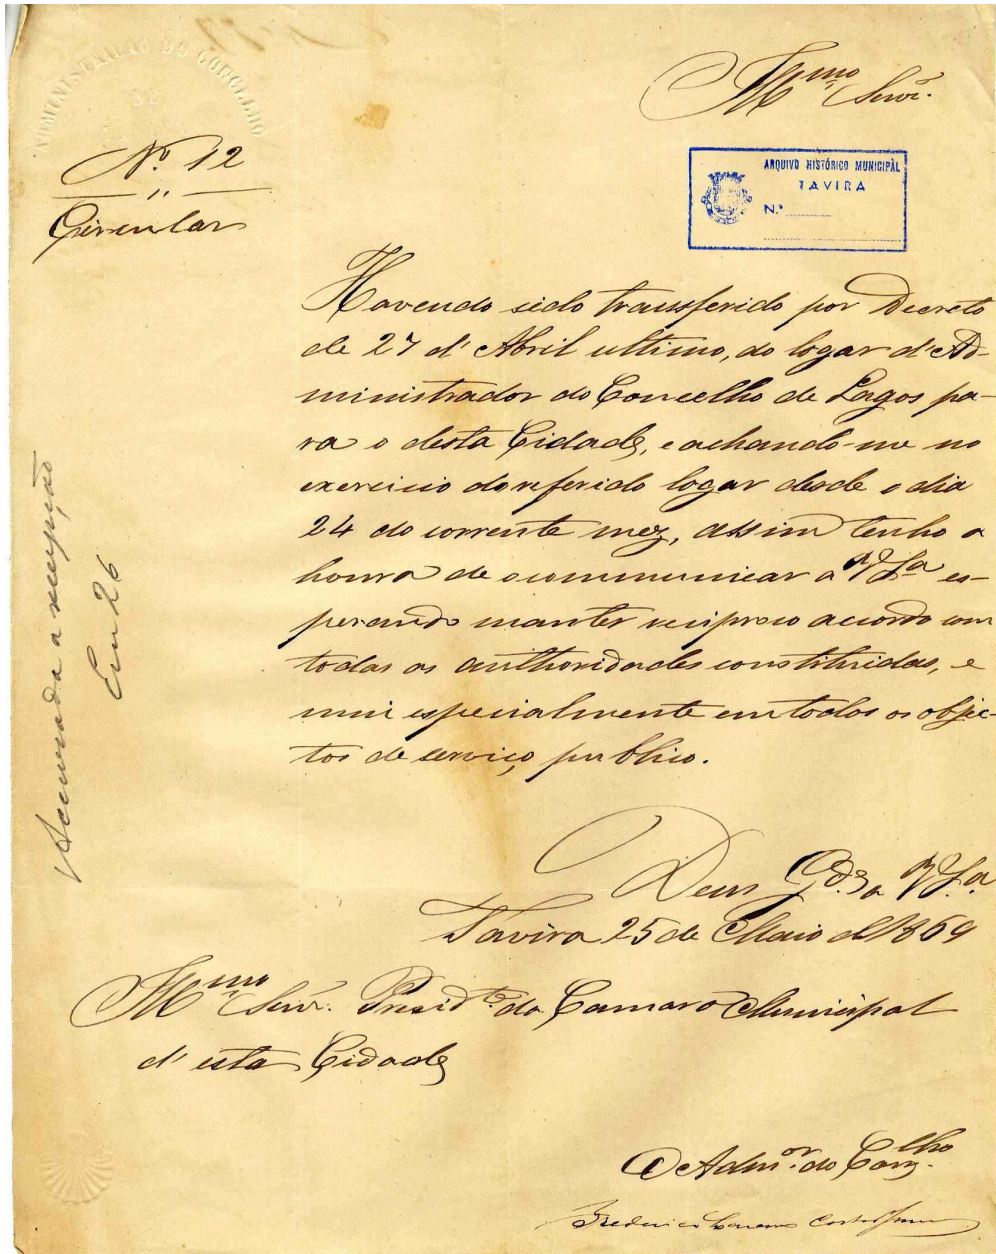 ADMINISTRAÇÃO DO CONCELHO
Illmo Senr.
Nº 12
Circular
ARQUIVO HISTÓRICO MUNICIPAL
TAVIRA
N.º
Havendo sido transferido por Decreto
de 27 d'Abril ultimo, do logar d'Ad-
ministrador do Concelho de Lagos pa-
ra o desta Cidade, e achando-me no
exercicio do referido logar desde o dia
24 do corrente mez, assim tenho a
honra de o communicar a V Sa es-
perando manter reciproco acordo com
todas as authoridades constituidas, e
mui especialmente em todos os obje-
tos de serviço publico.
Accusada a recepção
Em 26
Deus Gde a V Sa.
Tavira 25 de Maio de 1869
Illmo Senr. Presidte da Camara Municipal
d'esta Cidade
O Admor. do Conclho
Frederico